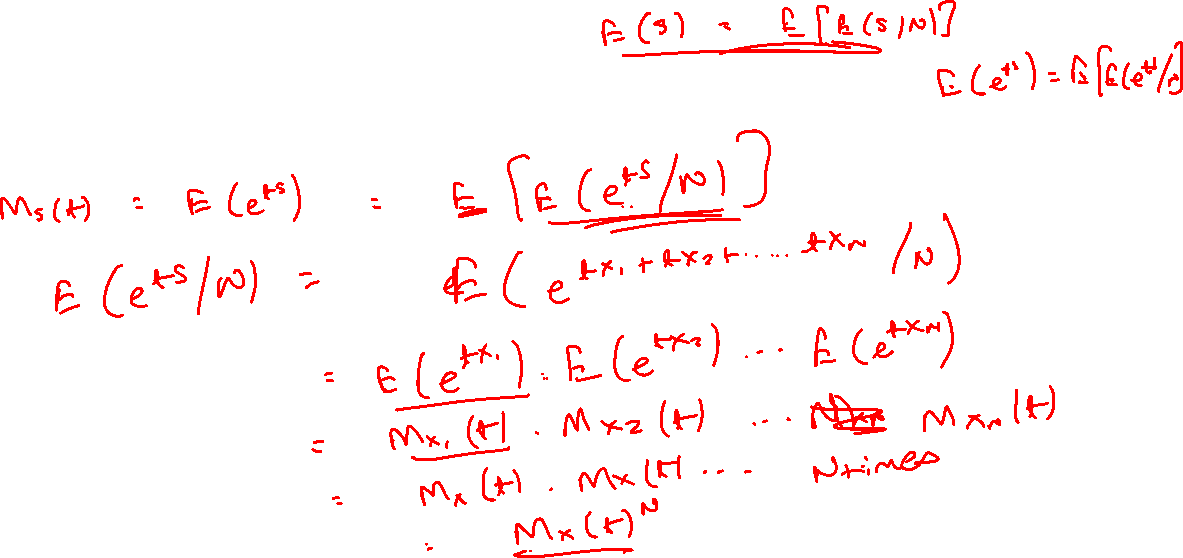 E(S) = E[E(S/N)]
E(e^{ts}) = E[E(e^{ts}/N)]
M_S(t) = E(e^{ts}) = E[E(e^{ts}/N)]
E(e^{ts}/N) = E(e^{tx_1 + tx_2 + ..... tx_N}/N)
= E(e^{tx_1}) . E(e^{tx_2}) ... E(e^{tx_N})
= M_{x_1}(t) . M_{x_2}(t) ... M_{x_N}(t)
= M_x(t) . M_x(t) ... N times
= M_x(t)^N